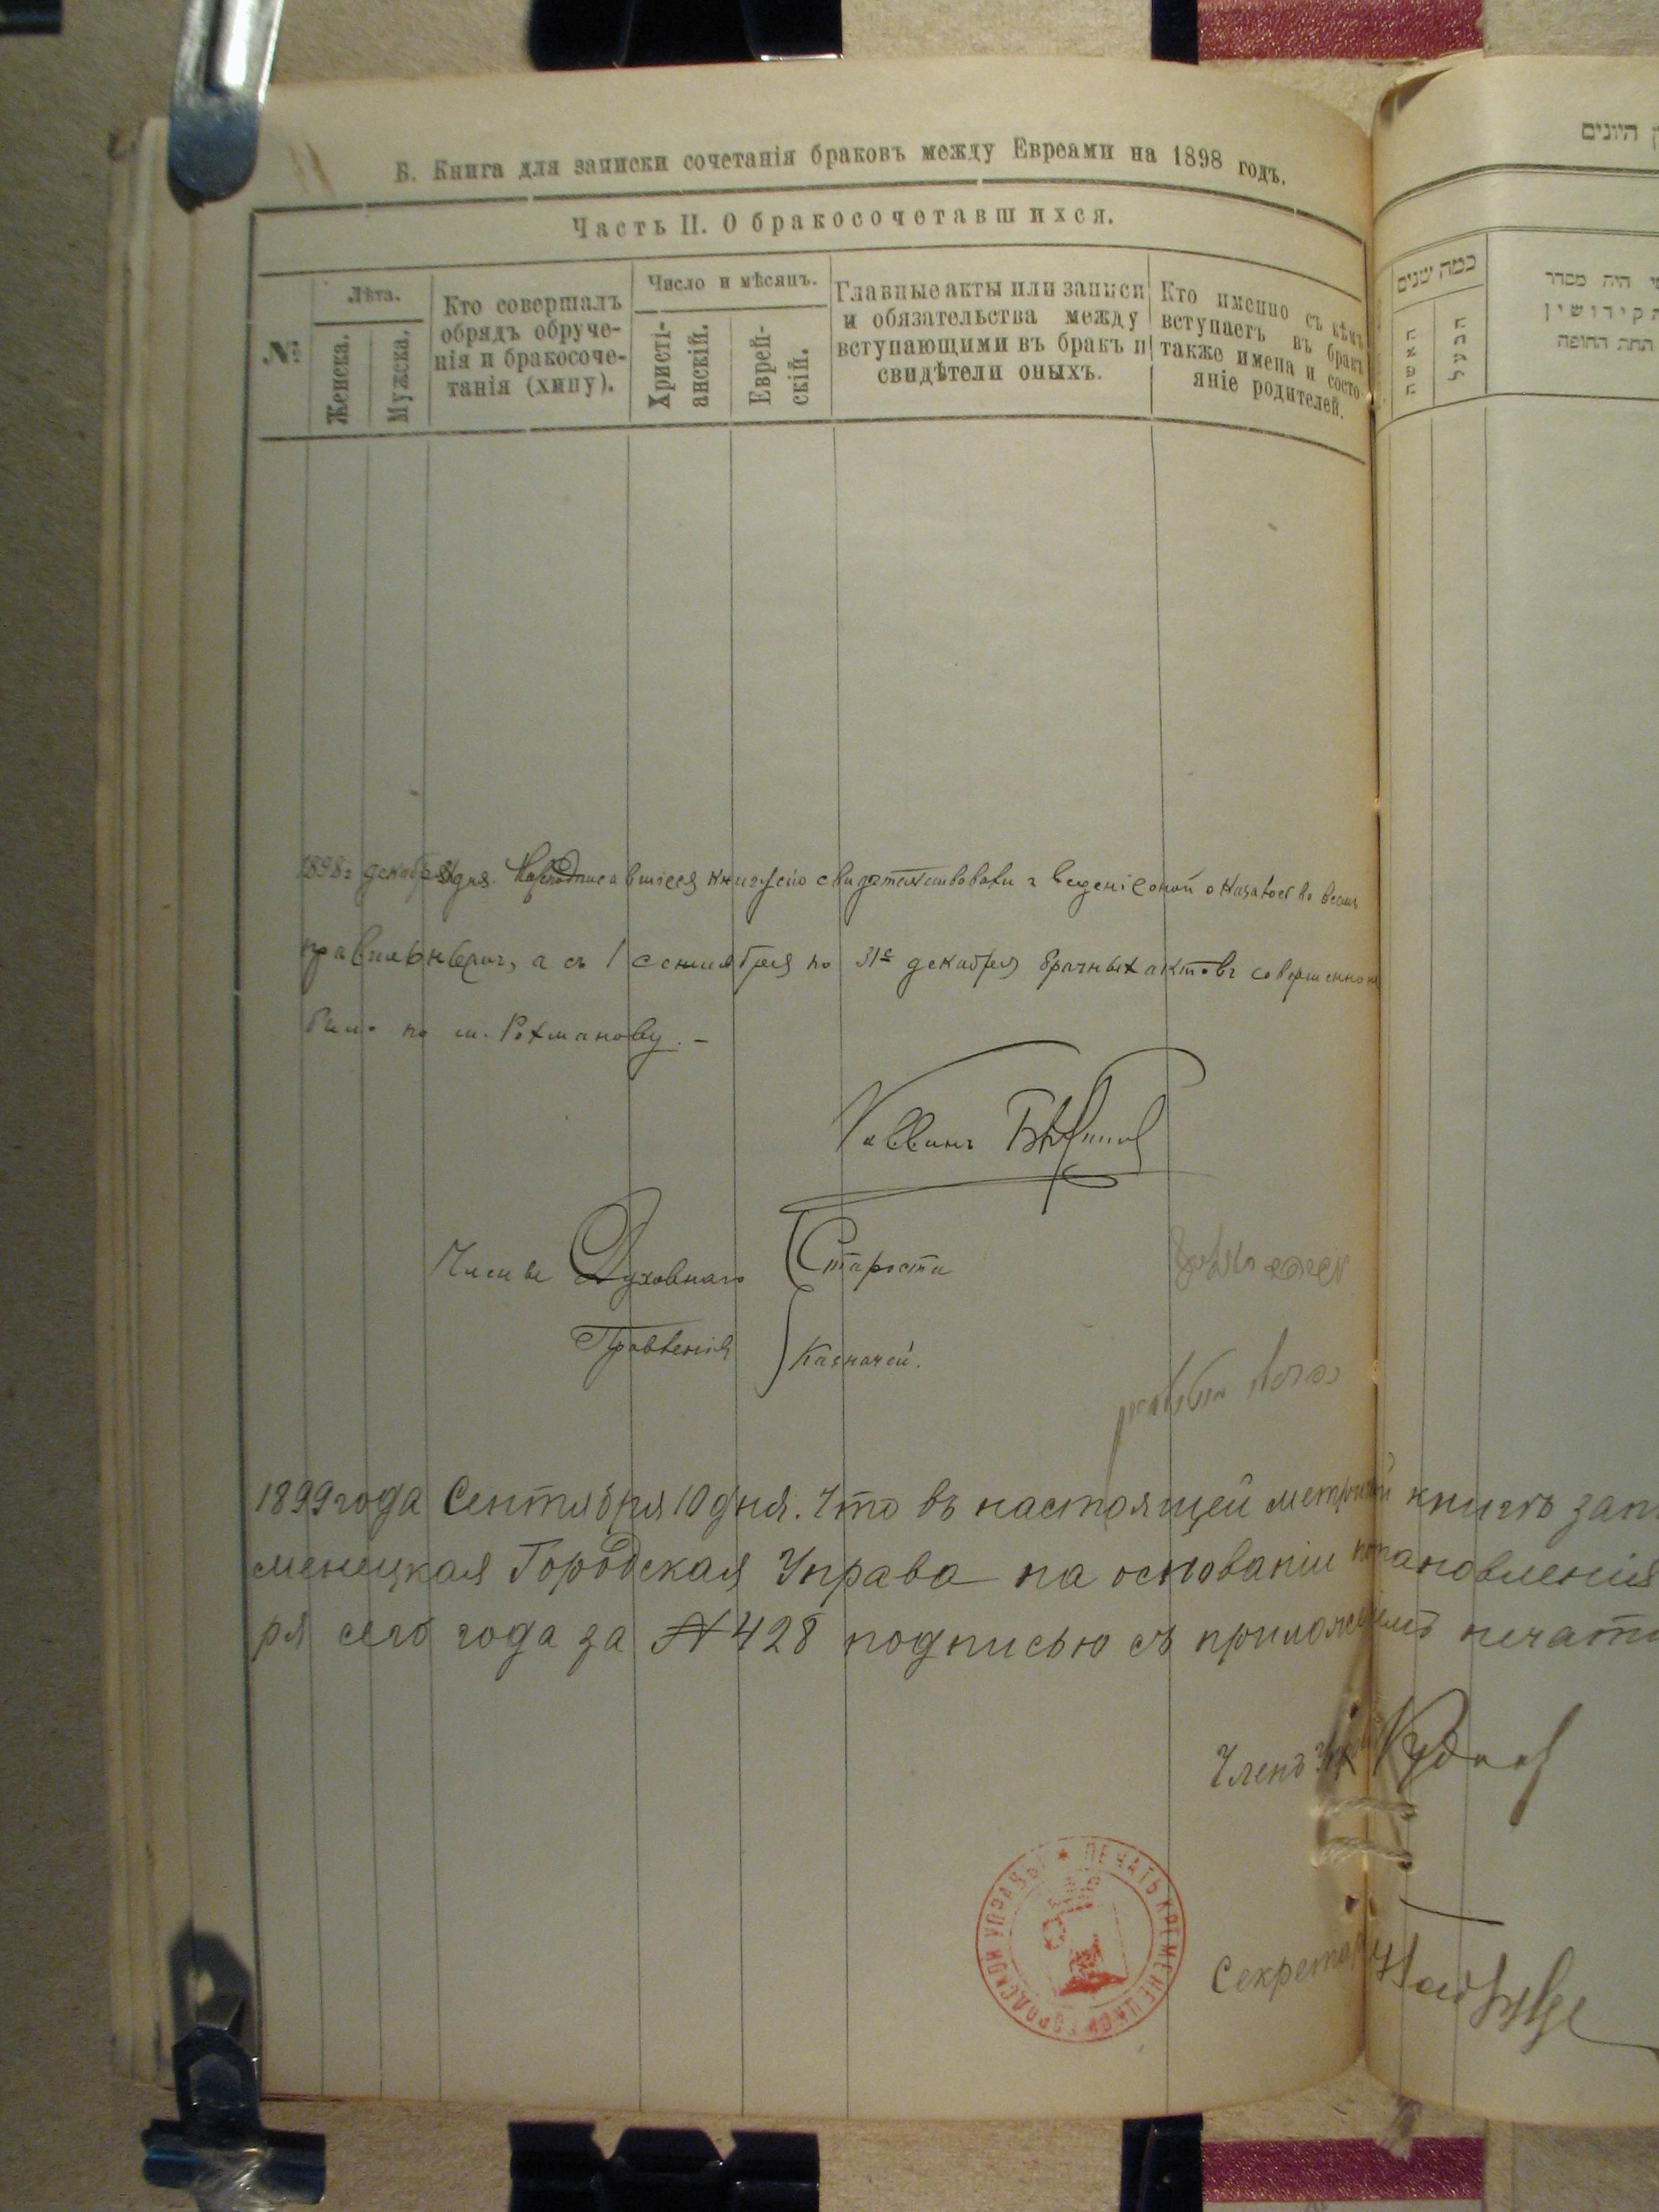 Б. Книга для записки сочетанія браковъ между Евреами на 1898 годъ.
Часть II. О бракосочетавшихся.
№
Лѣта.
Женска.
Мужска.
Кто совершалъ
обрядъ обруче-
нія и бракосоче-
танія (хипу).
Число и мѣсяцъ.
Христі-
анскій.
Еврей-
скій.
Главные акты или записи
и обязательства между
вступающими въ бракъ и
свидѣтели оныхъ.
Кто именно съ кѣмъ
вступаетъ въ бракъ
также имена и состо-
яніе родителей.
היונים
כמה שנים
האשה
הבעל
היה מסדר
קידושין
תחת החופה
1898 г декабря дня. книгу сію свидѣтельствовали
правильнымъ, а съ 1 сентября по 31е декабря брачныхъ актовъ совершенно
было по м. Рохманову. –
Раввинъ
Члены Духовнаго
Правленія
Староста
Казначей.
1899 года Сентября 10 дня. Что въ настоящей метричной книгѣ
менецкая Городская Управа на основаніи постановленія
ря сего года за № 428 подписью съ приложеніемъ печати
Членъ Управы
Секретарь
ПЕЧАТЬ КРЕМЕНЕЦКОЙ ГОРОДСКОЙ УПРАВЫ